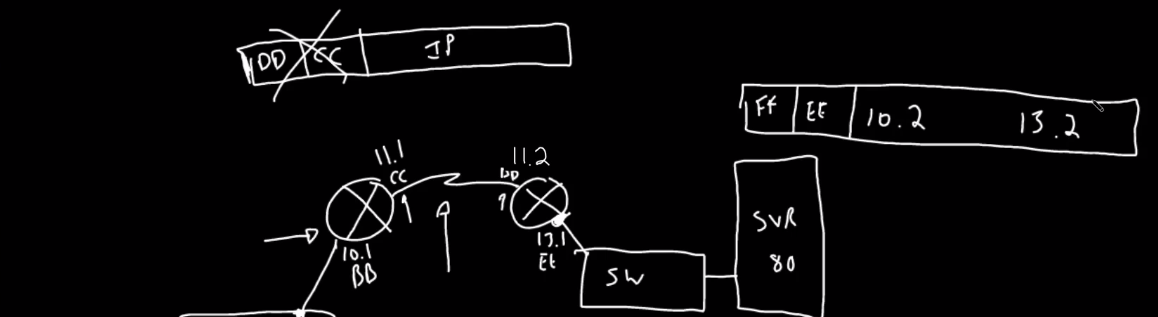 DD CC IP
FF EE 10.2 13.2
11.1
CC
11.2
DD
10.1
BB
13.1
EE
SW
SVR
80